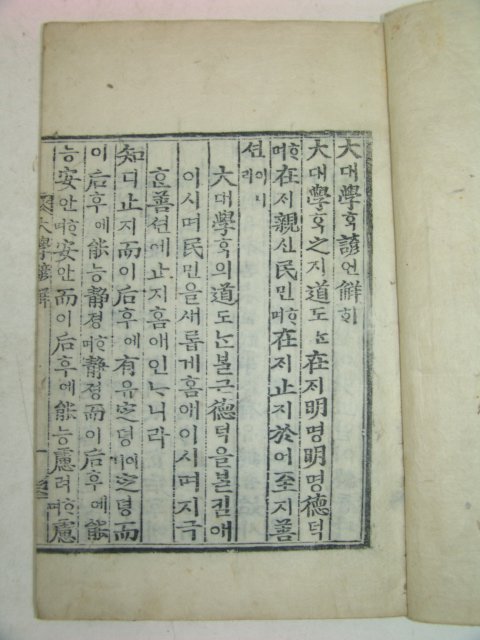 大대學ᄒᆞᆨ諺언解ᄒᆡ
大대學ᄒᆞᆨ之지道도ᄂᆞᆫ在ᄌᆡ明명明명德덕
ᄒᆞ며在ᄌᆡ親신民민ᄒᆞ며在ᄌᆡ止지於어至지善
션이니라
大대學ᄒᆞᆨ의道도ᄂᆞᆫ불근德덕을ᄇᆞᆯ킴애
이시며民민을새롭게홈애이시며지극
ᄒᆞᆫ善션에止지홈애인ᄂᆞ니라
知디止지而이后후에有유定뎡이니定뎡而
이后후에能능靜졍ᄒᆞ며靜졍而이后후에能
능安안ᄒᆞ며安안而이后후에能능慮려ᄒᆞ며慮
大學諺解
一